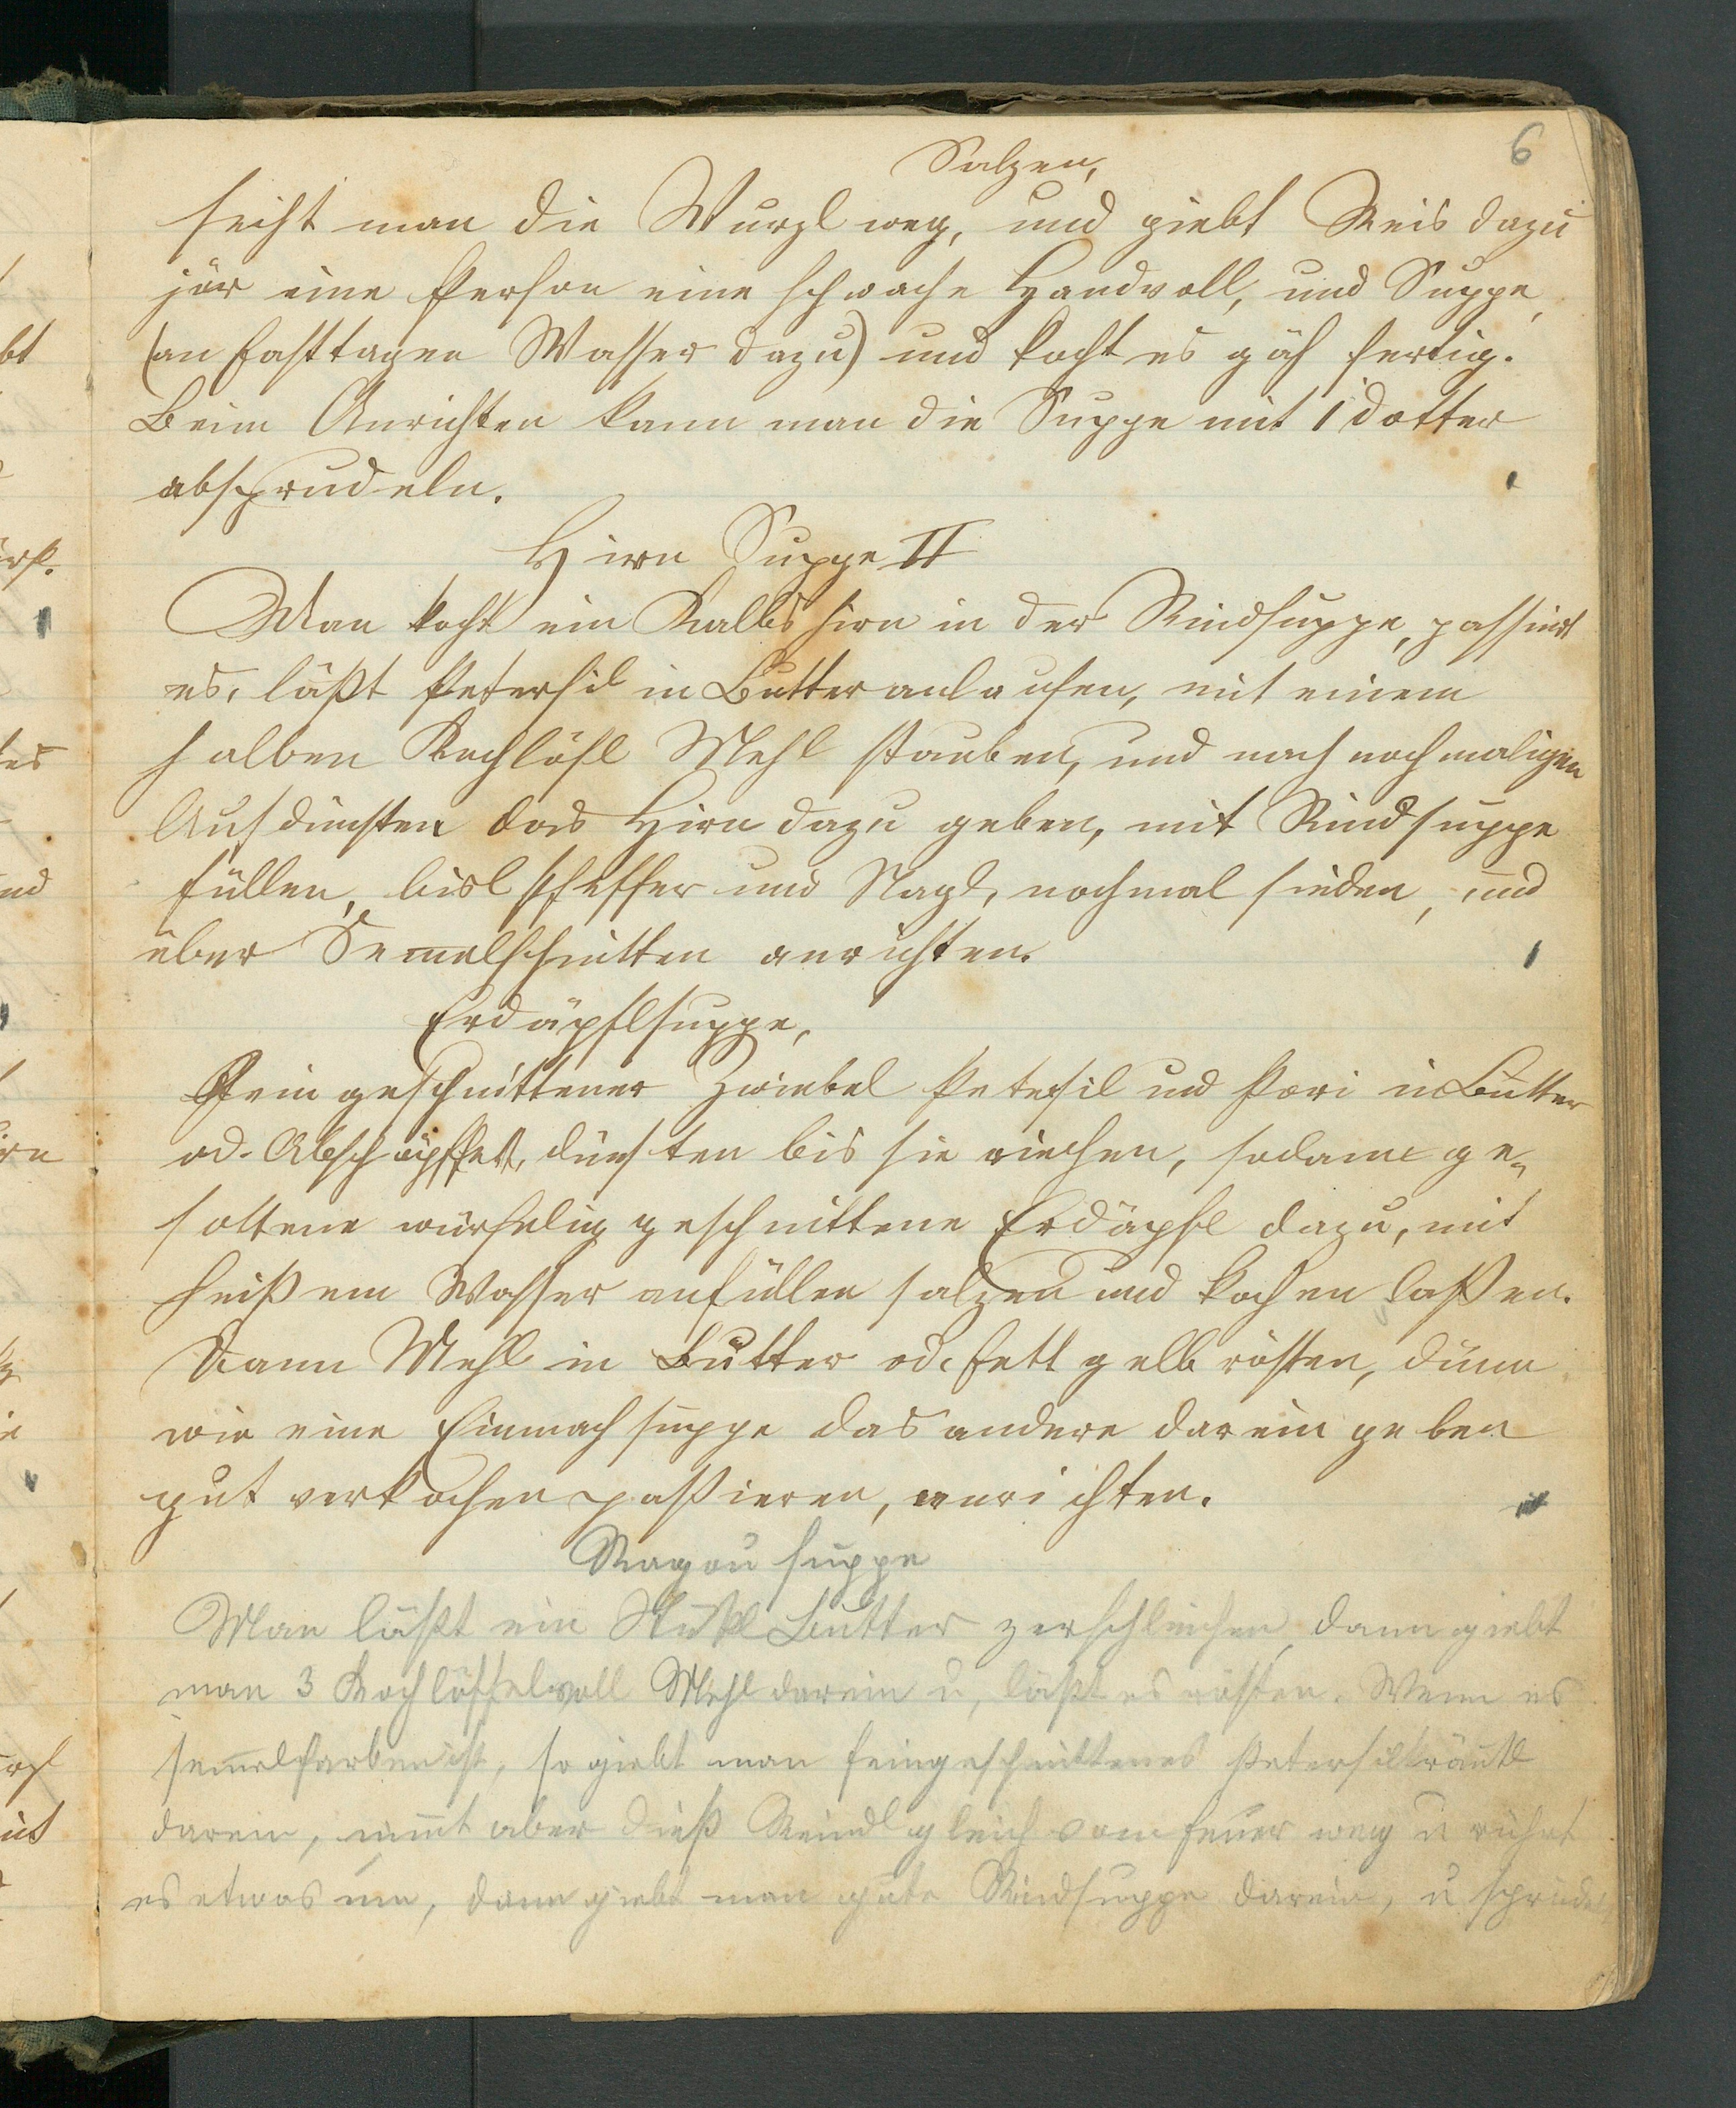 6
Salzen,
seiht man die Wurzl weg, und giebt Reis dazu
für eine Person eine schwache Handvoll, und Suppe,
(an Fasttagen Wasser dazu) und kocht es gäh fertig.
Beim Anrichten kann man die Suppe mit 1 Dotter
absprudeln.
Hirn Suppe II
Man kocht ein Kalbshirn in der Rindsuppe, passirt
es, läßt Petersil in Butter anlaufen, mit einem
halben Kochlöfl Mehl stauben, und nach nochmaligen
Aufdünsten das Hirn dazu geben, mit Rindsuppe
füllen, bisl Pfeffer und Nagl, nochmal sieden, und
über Semelschnitten anrichten.
Erdäpflsuppe,
Fein geschnittener Zwiebel Petersil und Pori in Butter
od. Abschöpffett, dünsten bis sie riechen, sodann ge-
sottene würfelig geschnittene Erdäpfl dazu, mit
heißem Wasser anfüllen salzen und kochen laßen.
Dann Mehl in Butter od. Fett gelb rösten, dünn
wie eine Einmachsuppe das andere darein geben
gut verkochen paßieren, anrichten.
Ragou suppe
Man läßt ein Stükl Butter zerschleichen, dann giebt
man 3 Kochlöffelvoll Mehl darein u, läßt es rösten. Wenn es
semelfarben ist, so giebt man feingeschnittenes Petersilkräutl
darein, nimt aber dieß Reindl gleich vom Feuer weg u rührt
es etwas um, dann giebt man gute Rindsuppe darein, u sprudelt
bt
tes
nd
rn